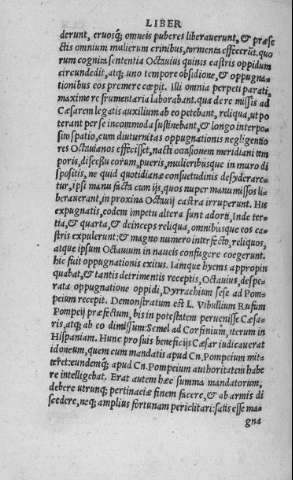 LIBER
derunt, eruosq; omneis puberes liberauerunt, & præse
ctis omnium mulierum crinibus, tormenta effecerunt. quo
rum cognita sententia Octauius quinis castris oppidum
circundedit, atq; uno tempore obsidione, & oppugna
tionibus eos premere cœpit. Illi omnia perpeti parati,
maxime re frumentaria laborabant. qua de re missis ad
Cæsarem legatis auxilium ab eo petebant, reliqua, ut po
terant per se incommoda sustinebant, & longo interpo
sito spatio, cum diuturnitas oppugnationis negligentio
res Octauianos effecisset, nacti occasionem meridiani tem
poris, discessu eorum, pueris, mulieribusque in muro di
spositis, ne quid quotidianæ consuetudinis desyderare
tur, ipsi manu facta cum ijs, quos nuper manumissos li
berauerant, in proxima Octauij castra irruperunt. His
expugnatis, eodem impetu altera sunt adorti, Inde ter
tia, & quarta, & deinceps reliqua, omnibusque eos ca
stris expulerunt: & magno numero interfecto, reliquos,
atque ipsum Octauium in naueis confugere coegerunt.
hic fuit oppugnationis exitus. Iamque hyems appropin
quabat, & tantis detrimentis receptis, Octauius, despe
rata oppugnatione oppidi, Dyrrachium sese ad Pom
peium recepit. Demonstratum est L. Vibullium Rufum
Pompeij præfectum, bis in potestatem peruenisse Cæsa
ris, atq; ab eo dimissum: Semel ad Corfinium, iterum in
Hispaniam. Hunc pro suis beneficijs Cæsar iudicauerat
idoneum, quem cum mandatis apud Cn. Pompeium mitte
teret: eundemq; apud Cn. Pompeium authoritatem habe
re intelligebat. Erat autem hæc summa mandatorum,
debere utrunq; pertinaciæ finem facere, & ab armis di
scedere, neq; amplius fortunam periclitari: satis esse ma-
gna